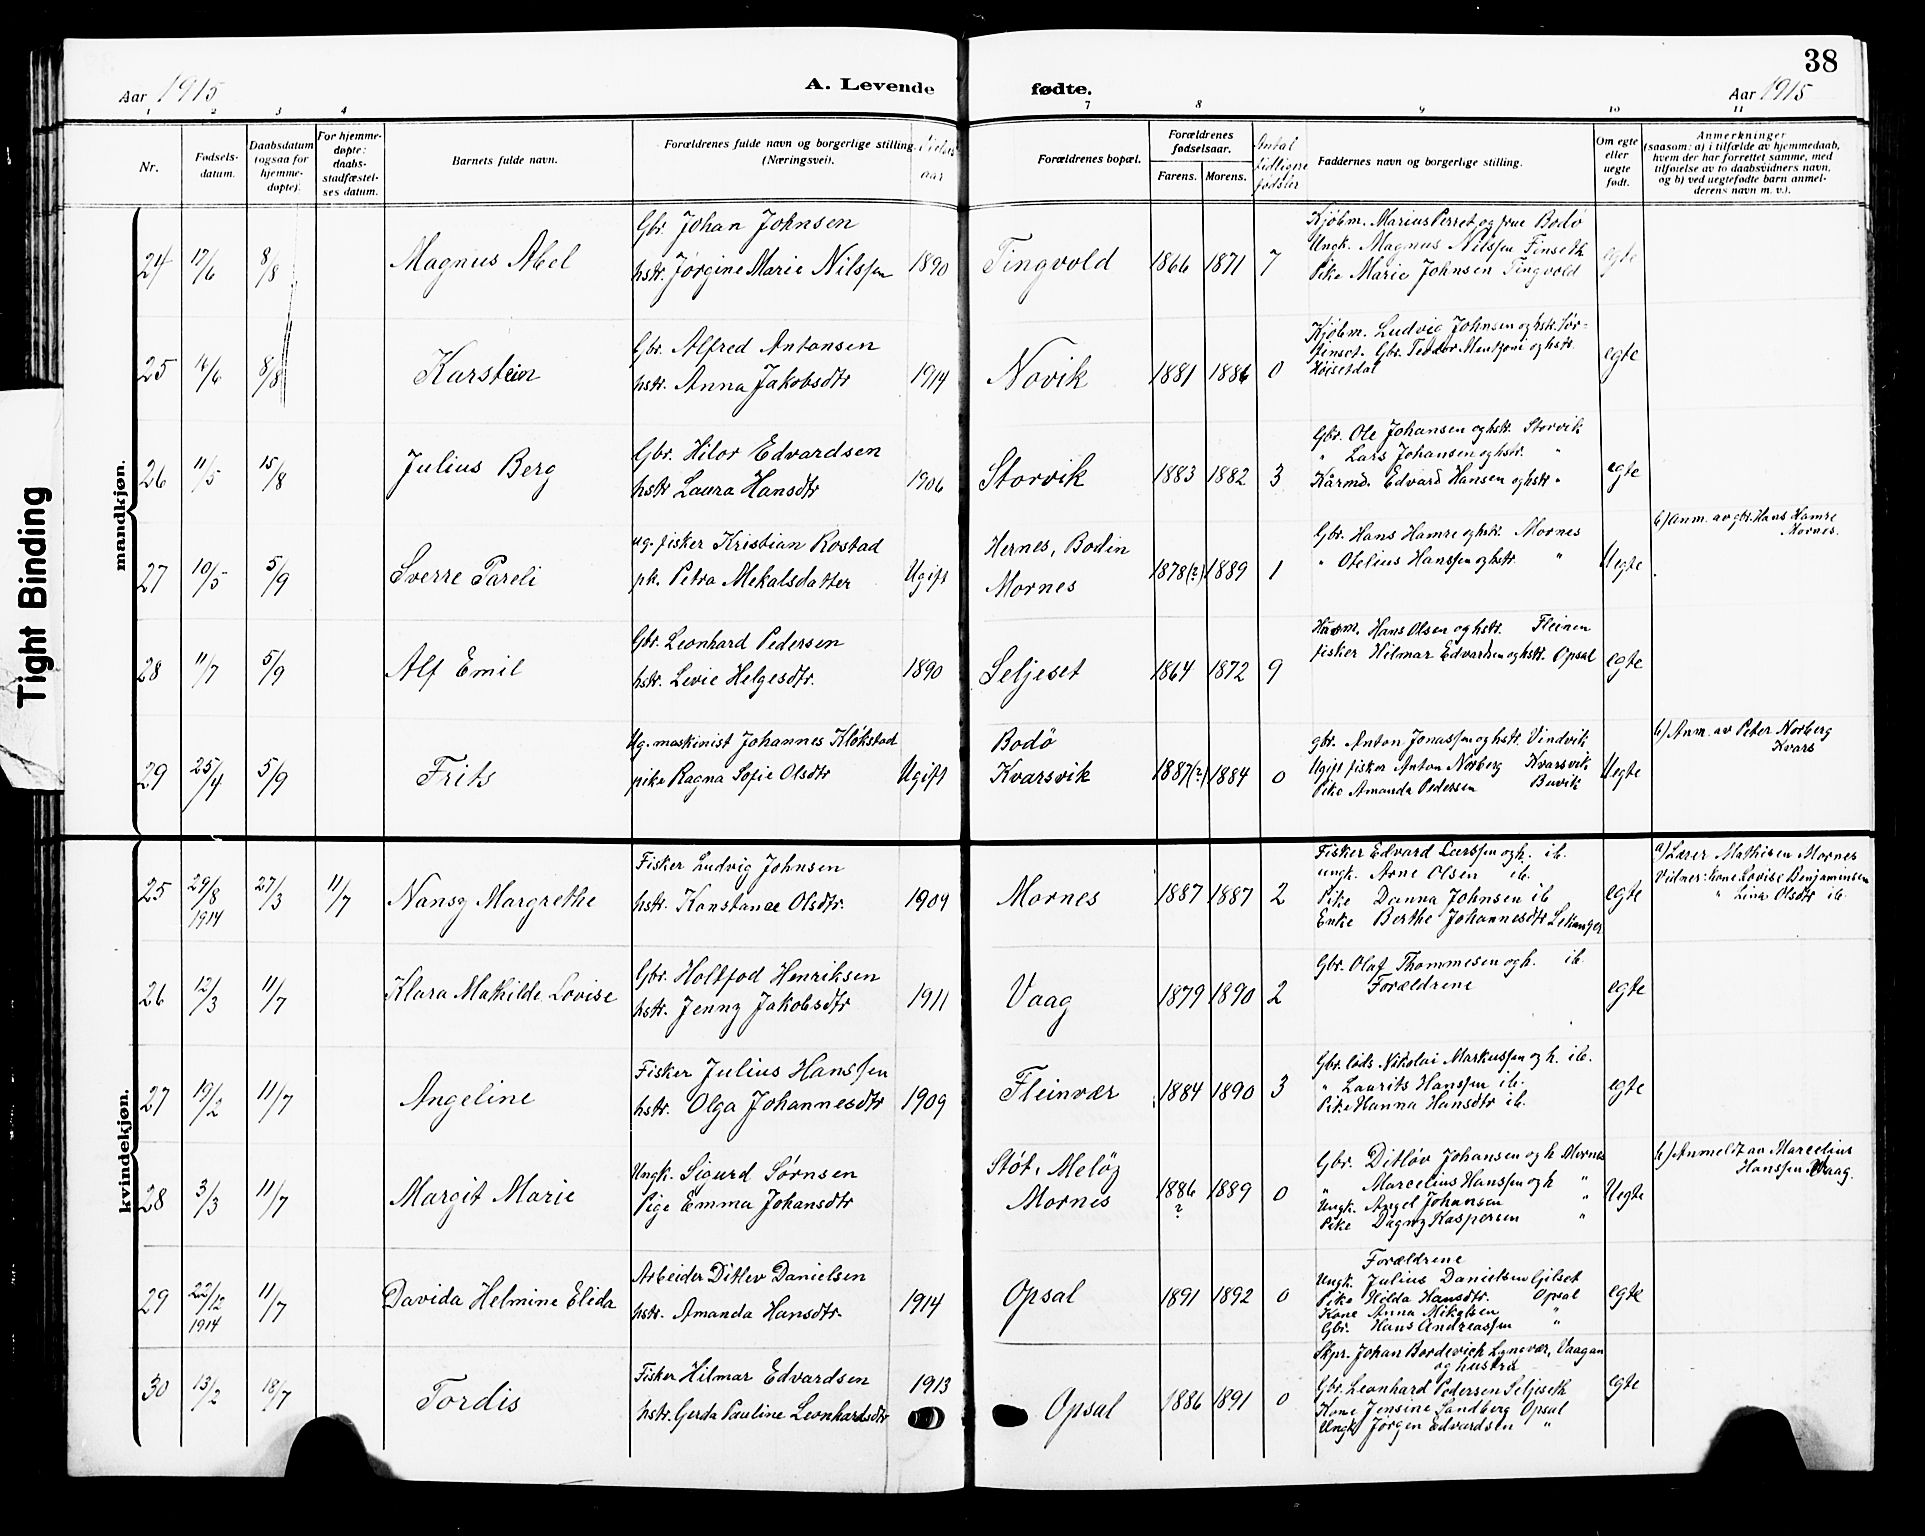 Tight Binding
38
Aar 1915
A. Levende fødte.
Aar 1915
1 2 3 4 7 8 9 10 11
Nr.
Fødsels-
datum.
Daabsdatum
(ogsaa for
hjemme-
døpte).
For hjemme-
døpte:
daabs-
stadfæstel-
ses datum.
Barnets fulde navn.
Forældrenes fulde navn og borgerlige stilling
(Næringsvei).
Vielses
aar
Forældrenes bopæl.
Forældrenes
fødselsaar.
Farens. Morens.
Antal
tidligere
fødsler
Faddernes navn og borgerlige stilling.
Om egte
eller
uegte
født.
Anmerkninger
(saasom: a) i tilfælde av hjemmedaab,
hvem der har forrettet samme, med
tilføielse av to daabsvidners navn,
og b) ved uegtefødte barn anmel-
derens navn m. v.).
mandkjøn.
24 17/6 8/8 Magnus Abel
Gbr. Johan Johnsen
hstr. Jørgine Marie Nilssen 1890
Tingvold 1866 1871 7
Kjøbm. Marius Perret og frue Bodø
Ungk. Magnus Nilssen Finseth
Pike Marie Johnsen Tingvold
egte
25 16/6 8/8 Karstein
Gbr. Alfred Antonsen
hstr. Anna Jakobsdtr 1914
Novik 1881 1886 0
Kjøbm. Ludvig Johnsen og hsk. Sør-
fenset. Gbr. Teodor Mentzoni og hstr.
Høisetdal
egte
26 11/5 15/8 Julius Berg
Gbr. Hilor Edvardsen
hstr Laura Hansdtr 1906
Storvik 1883 1882 3
Gbr. Ole Johansen og hstr. Storvik
" Lars Johansen og hstr. "
Kårmd. Edvard Hansen og hstr "
egte
27 10/5 5/9 Sverre Pareli
ug. fisker Kristian Rostad
pk. Petra Mekalsdatter Ugift
Hernes, Bodin
Mornes
1878(?) 1889 1
Gbr. Hans Hamre og hsk. Mornes
" Otelius Hanssen og hstr. "
Uegte
b) Anm. av gbr. Hans Hamre
Mornes.
28 11/7 5/9 Alf Emil
Gbr. Leonhard Pedersen
hstr. Levie Helgesdtr. 1890
Seljeset 1864 1872 9
Kårm. Hans Olsen og hstr. Fleinen
fisker Hilmar Edvardsen og hstr. Opsal
egte
29 25/4 5/9 Frits
Ug. maskinist Johannes Kløkstad
pike Ragna Sofie Olsdtr Ugift
Bodö
Kvarsvik
1887(?) 1884 0
gbr. Anton Jonassen og hstr. Vindvik
Ugift fisker Anton Norberg Kvarsvik
Pike Amanda Pedersen Buvik
Uegte
b) Anm. av Peter Norberg
Kvars
kvindekjøn.
25 29/8 1914 27/3 11/7 Nansy Margrethe
Fisker Ludvig Johnsen
hstr. Konstanse Olsdtr. 1909
Mornes 1887 1887 2
Fisker Edvard Larssen og h. ib.
ungk. Arne Olsen ib.
Pike Danna Johnsen ib
Enke Berthe Johannesdtr Lekanger
egte
a) Lærer Mathisen Mornes
Vidner: kone Lovise Benjaminsen
" Lina Olsdtr ib.
26 12/3 11/7 Klara Mathilde Lovise
Gbr. Holtfod Henriksen
hstr. Jenny Jakobsdtr 1911
Vaag 1879 1890 2
Gbr. Olaf Thommesen og h. ib.
Forældrene
egte
27 19/2 11/7 Angeline
Fisker Julius Hanssen
hstr. Olga Johannesdtr 1909
Fleinvær 1884 1890 3
Gbr. lods Nikolai Markussen og h. ib.
" Laurits Hanssen ib.
Pike Hanna Hansdtr ib.
egte
28 3/3 11/7 Margit Marie
Ungk. Sigurd Sørnsen
Pige Emma Johansdtr
Støt, Meløy
Mornes
1886 ? 1889 0
Gbr. Ditløv Johansen og h Mornes
" Marcelius Hanssen og h "
Ungk. Angel Johansen "
Pike Dagny Kaspersen "
Uegte
b) Anmeldt av Marcelius
Hanssen Vaag.
29 22/12 1914 11/7 Davida Helmine Elida
Arbeider Ditlev Danielsen
hstr. Amanda Hansdtr. 1914
Opsal 1891 1892 0
Forældrene
Ungk. Julius Danielsen Gilset
Pike Hilda Hansdtr. Opsal
Kone Anna Mikalsen "
Gbr. Hans Andreassen "
egte
30 13/2 18/7 Tordis
Fisker Hilmar Edvardsen
hstr. Gerda Pauline Leonhardsdtr 1913
Opsal 1886 1891 0
Skpr. Johan Bordevick Lyngvær, Vaagan
og hustru
Gbr. Leonhard Pedersen Seljeseth
Kone Jensine Sandberg Opsal
Ungk. Jørgen Edvardsen "
egte